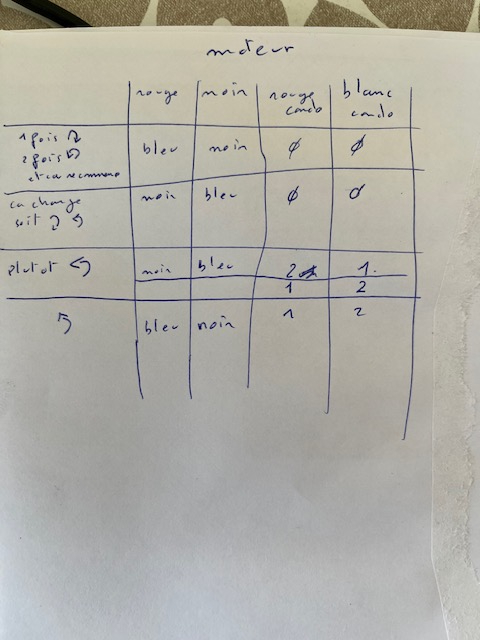 moteur
rouge noir rouge condo blanc condo
1 fois ↷ 2 fois ↶ et ça recommence bleu noir ∅ ∅
ça change soit ↷ ↶ noir bleu ∅ ∅
plutot ↶ noir bleu 2 1
1 2
↶ bleu noir 1 2